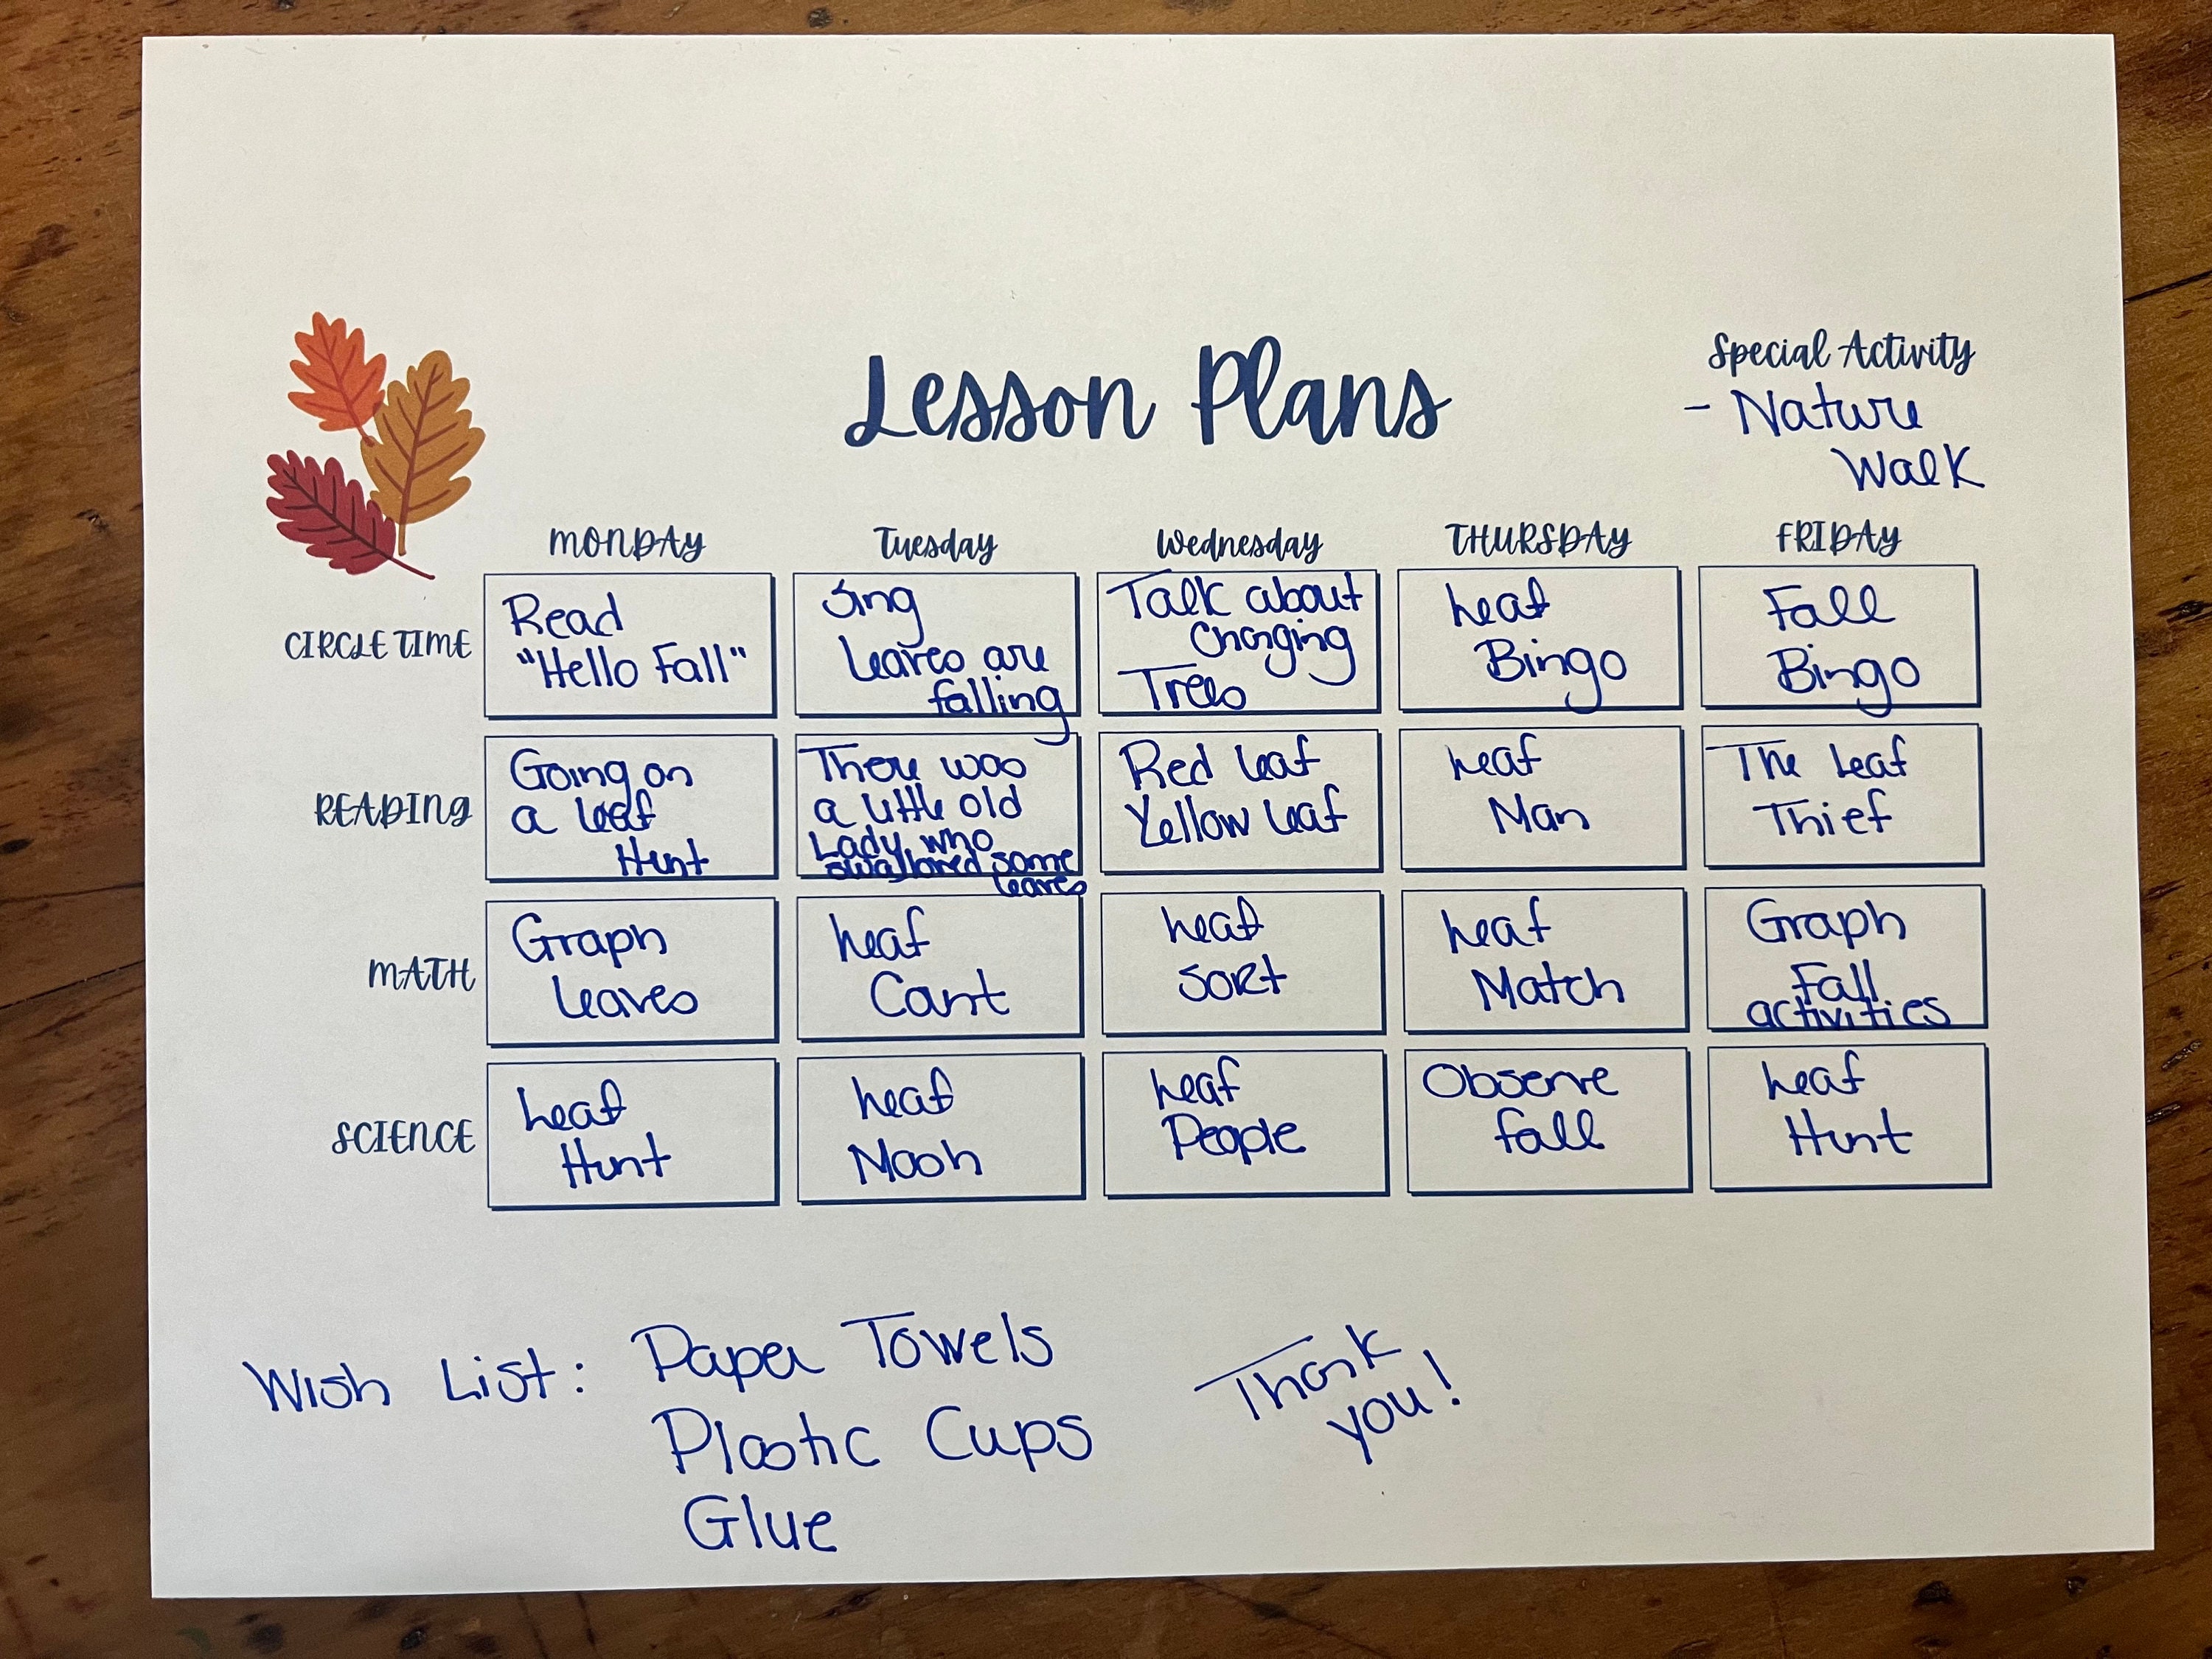 Lesson Plans
Special Activity
- Nature
Walk
MONDAY
Tuesday
Wednesday
THURSDAY
FRIDAY
CIRCLE TIME
Read
"Hello Fall"
Sing
Leaves are
falling
Talk about
changing
Trees
Leaf
Bingo
Fall
Bingo
READING
Going on
a leaf
Hunt
There was
a little old
Lady who
swallowed some
leaves
Red Leaf
Yellow Leaf
Leaf
Man
The Leaf
Thief
MATH
Graph
Leaves
Leaf
Count
Leaf
Sort
Leaf
Match
Graph
Fall
activities
SCIENCE
Leaf
Hunt
Leaf
Mash
Leaf
People
Observe
fall
Leaf
Hunt
Wish List: Paper Towels
Plastic Cups
Glue
Thank
you!